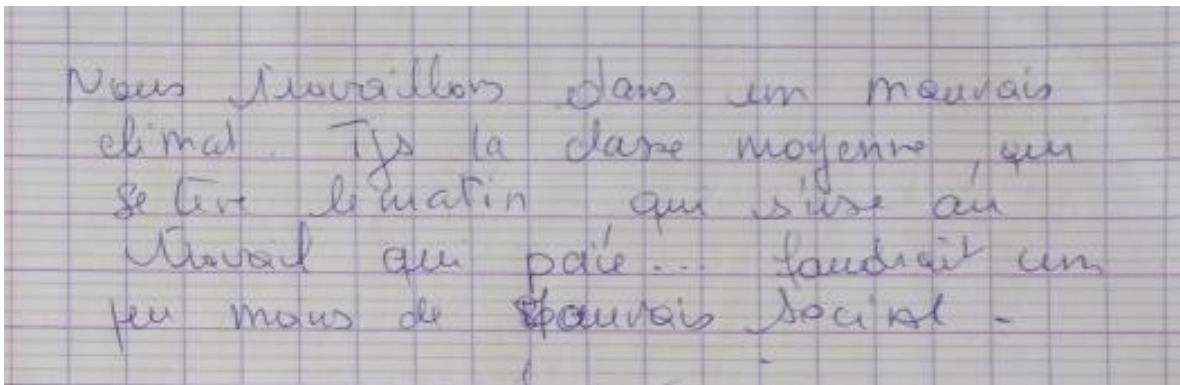 Nous travaillons dans un mauvais
climat. Tjs la classe moyenne, qui
se lève le matin qui s'use au
travail qui paie... faudrait un
peu moins de mauvais social -